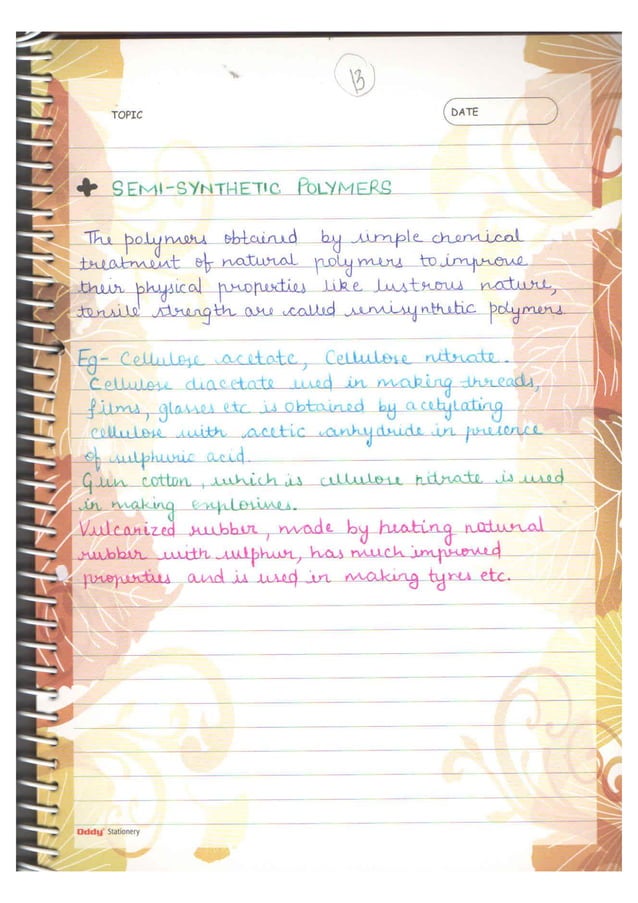 13
TOPIC
DATE
+ SEMI-SYNTHETIC POLYMERS
The polymers obtained by simple chemical
treatment of natural polymers to improve
their physical properties like lustrous nature,
tensile strength are called semisynthetic polymers.
Eg- Cellulose acetate, Cellulose nitrate.
Cellulose diacetate used in making threads,
films, glasses etc is obtained by acetylating
cellulose with acetic anhydride in presence
of sulphuric acid.
Gun cotton, which is cellulose nitrate is used
in making explosives.
Vulcanized rubber, made by heating natural
rubber with sulphur, has much improved
properties and is used in making tyres etc.
Oddy Stationery